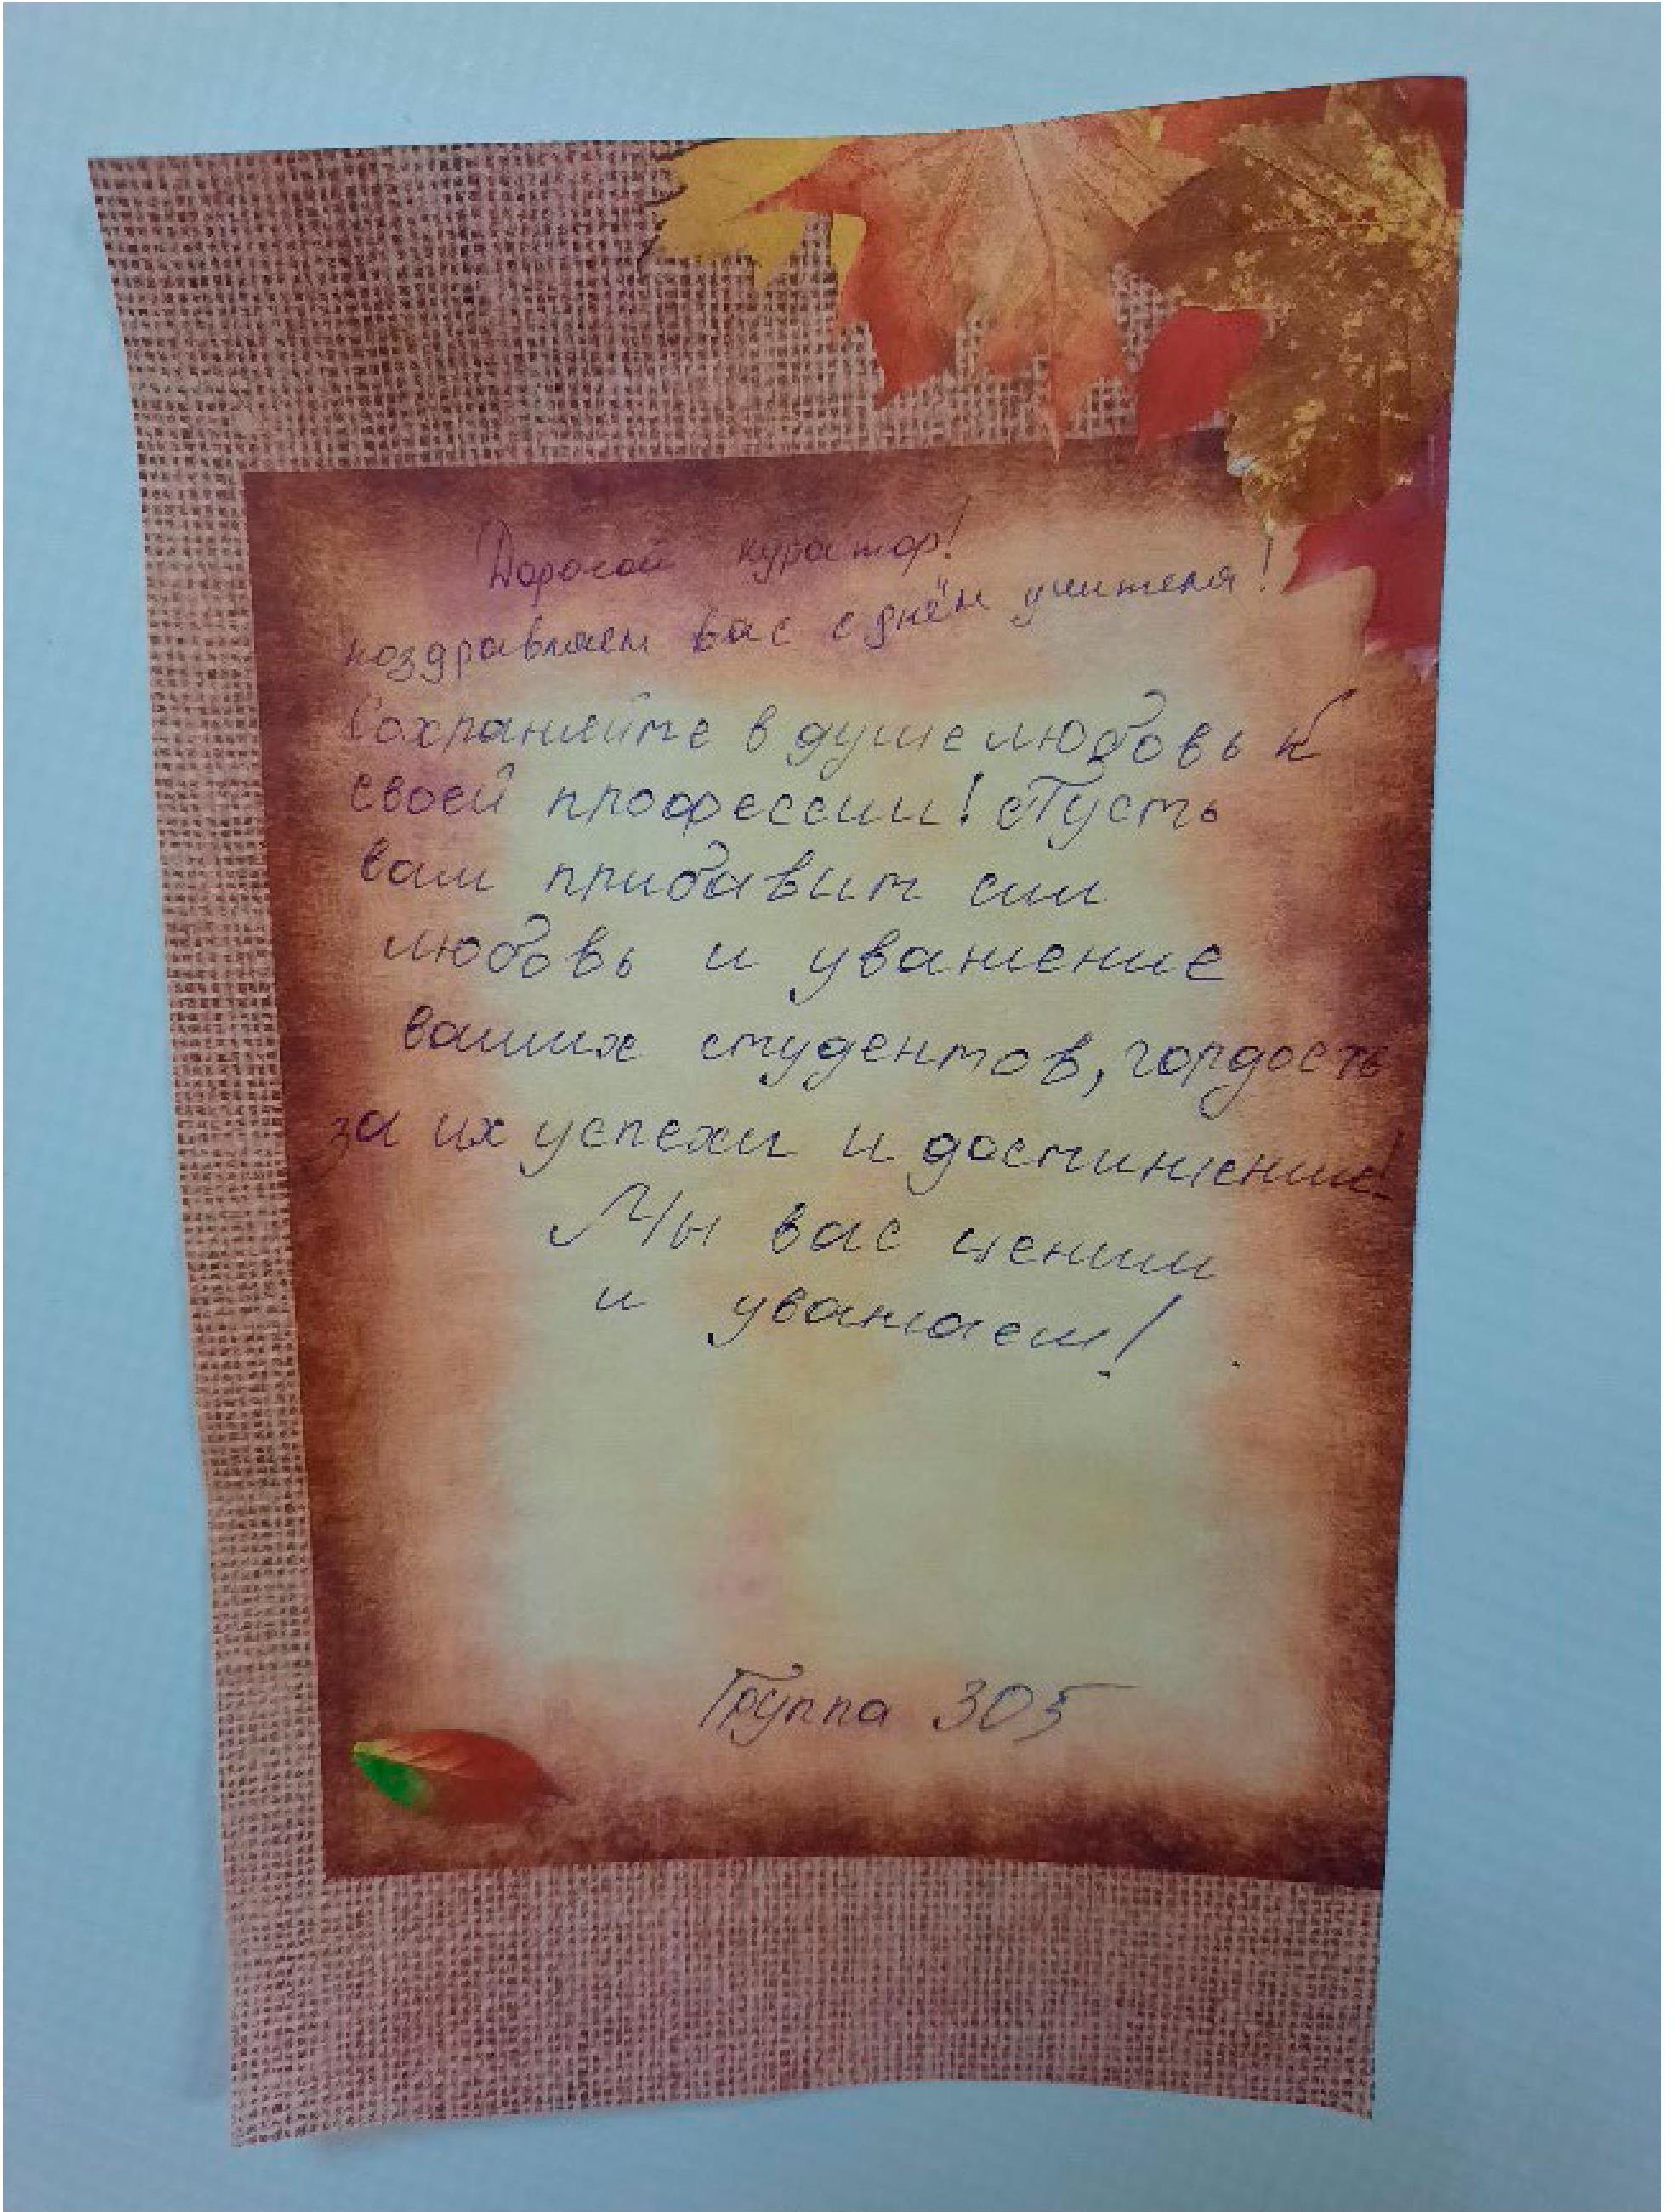 Дорогой куратор!
поздравляем вас с днём учителя!
Сохраняйте в душе любовь к
своей профессии! Пусть
вам прибавит сил
любовь и уважение
ваших студентов, гордость
за их успехи и достижения!
Мы вас ценим
и уважаем!
Группа 305